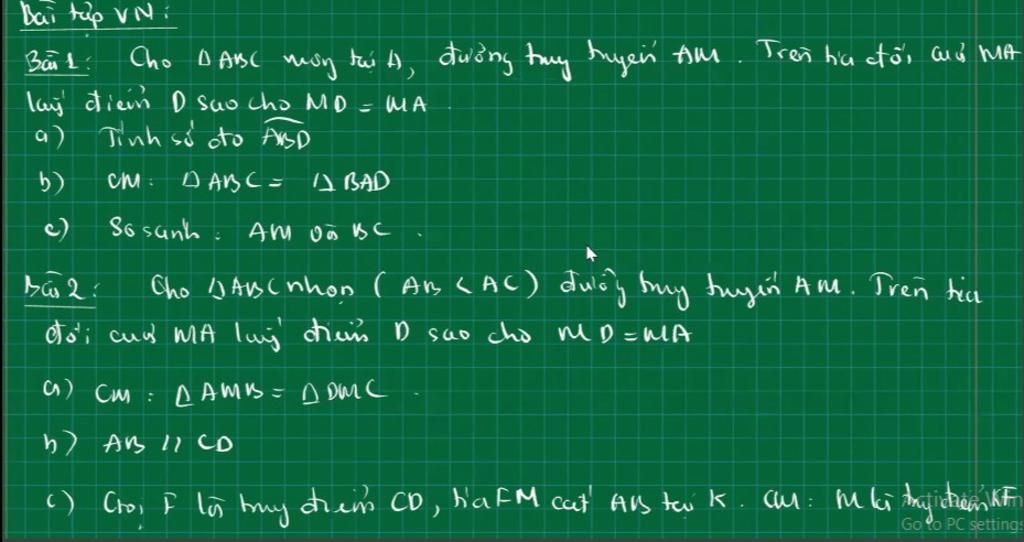 Bài tập VN:
Bài 1: Cho ΔABC vuông tại A, đường trung tuyến AM. Trên tia đối của MA
lấy điểm D sao cho MD = MA.
a) Tính số đo ABD
b) CM: ΔABC = ΔBAD
c) So sánh: AM và BC.
Bài 2: Cho ΔABC nhọn (AB < AC) đường trung tuyến AM. Trên tia
đối của MA lấy điểm D sao cho MD = MA
a) CM: ΔAMB = ΔDMC.
b) AB // CD
c) Gọi F là trung điểm CD, tia FM cắt AB tại K. CM: M là trung điểm KF
Activate Win
Go to PC settings